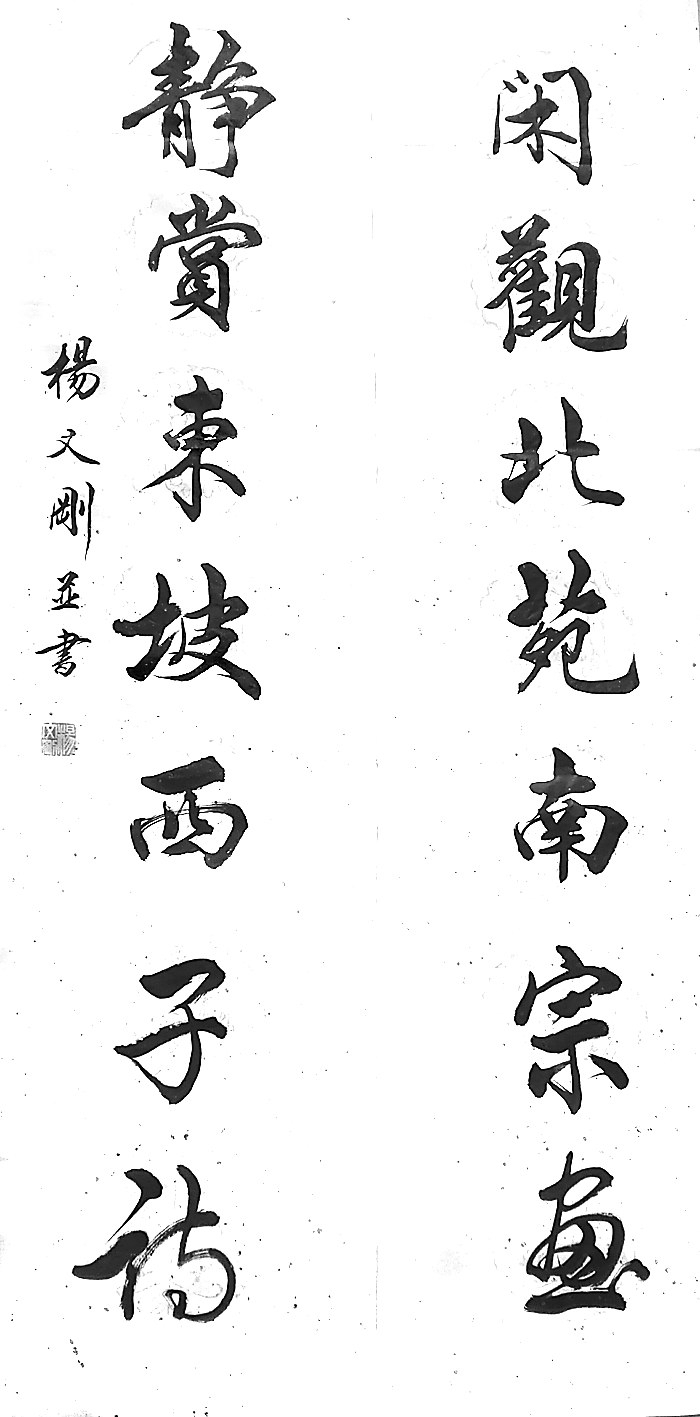 閑觀北苑南宗畫
靜賞東坡西子詩
楊文剛並書